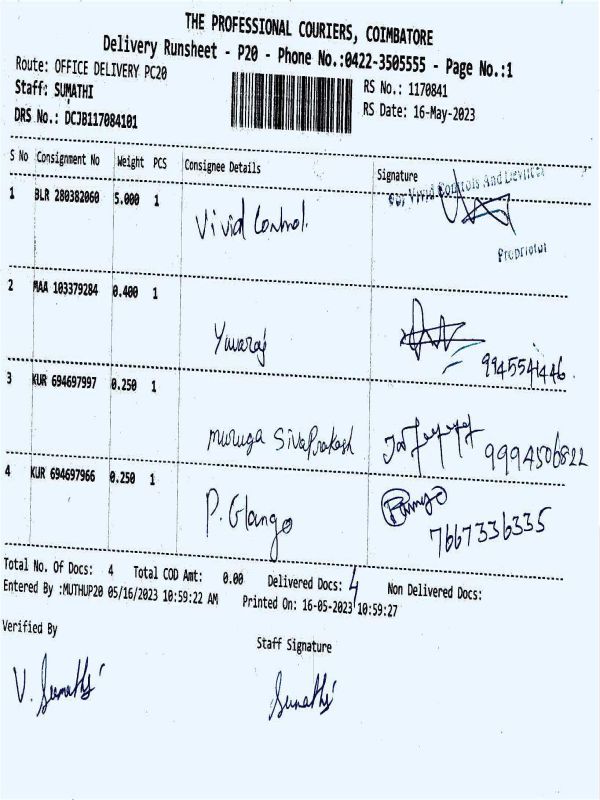 THE PROFESSIONAL COURIERS, COIMBATORE
Delivery Runsheet - P20 - Phone No.:0422-3505555 - Page No.:1
Route: OFFICE DELIVERY PC20
RS No.: 1170841
Staff: SUMATHI
RS Date: 16-May-2023
DRS No.: DCJB117084101
S No Consignment No Weight PCS Consignee Details Signature
1 BLR 280382060 5.000 1 Vivid Control.
For Vivid Controls And Devices
Proprietor
2 MAA 103379284 0.400 1
Yuvaraj 9945541446.
3 KUR 694697997 0.250 1
Muruga SivaPrakash 9994506822
4 KUR 694697966 0.250 1
P. Glango 7667336335
Total No. Of Docs: 4 Total COD Amt: 0.00 Delivered Docs: 4 Non Delivered Docs:
Entered By :MUTHUP20 05/16/2023 10:59:22 AM Printed On: 16-05-2023 10:59:27
Verified By
Staff Signature
V. Sumathi
Sumathi